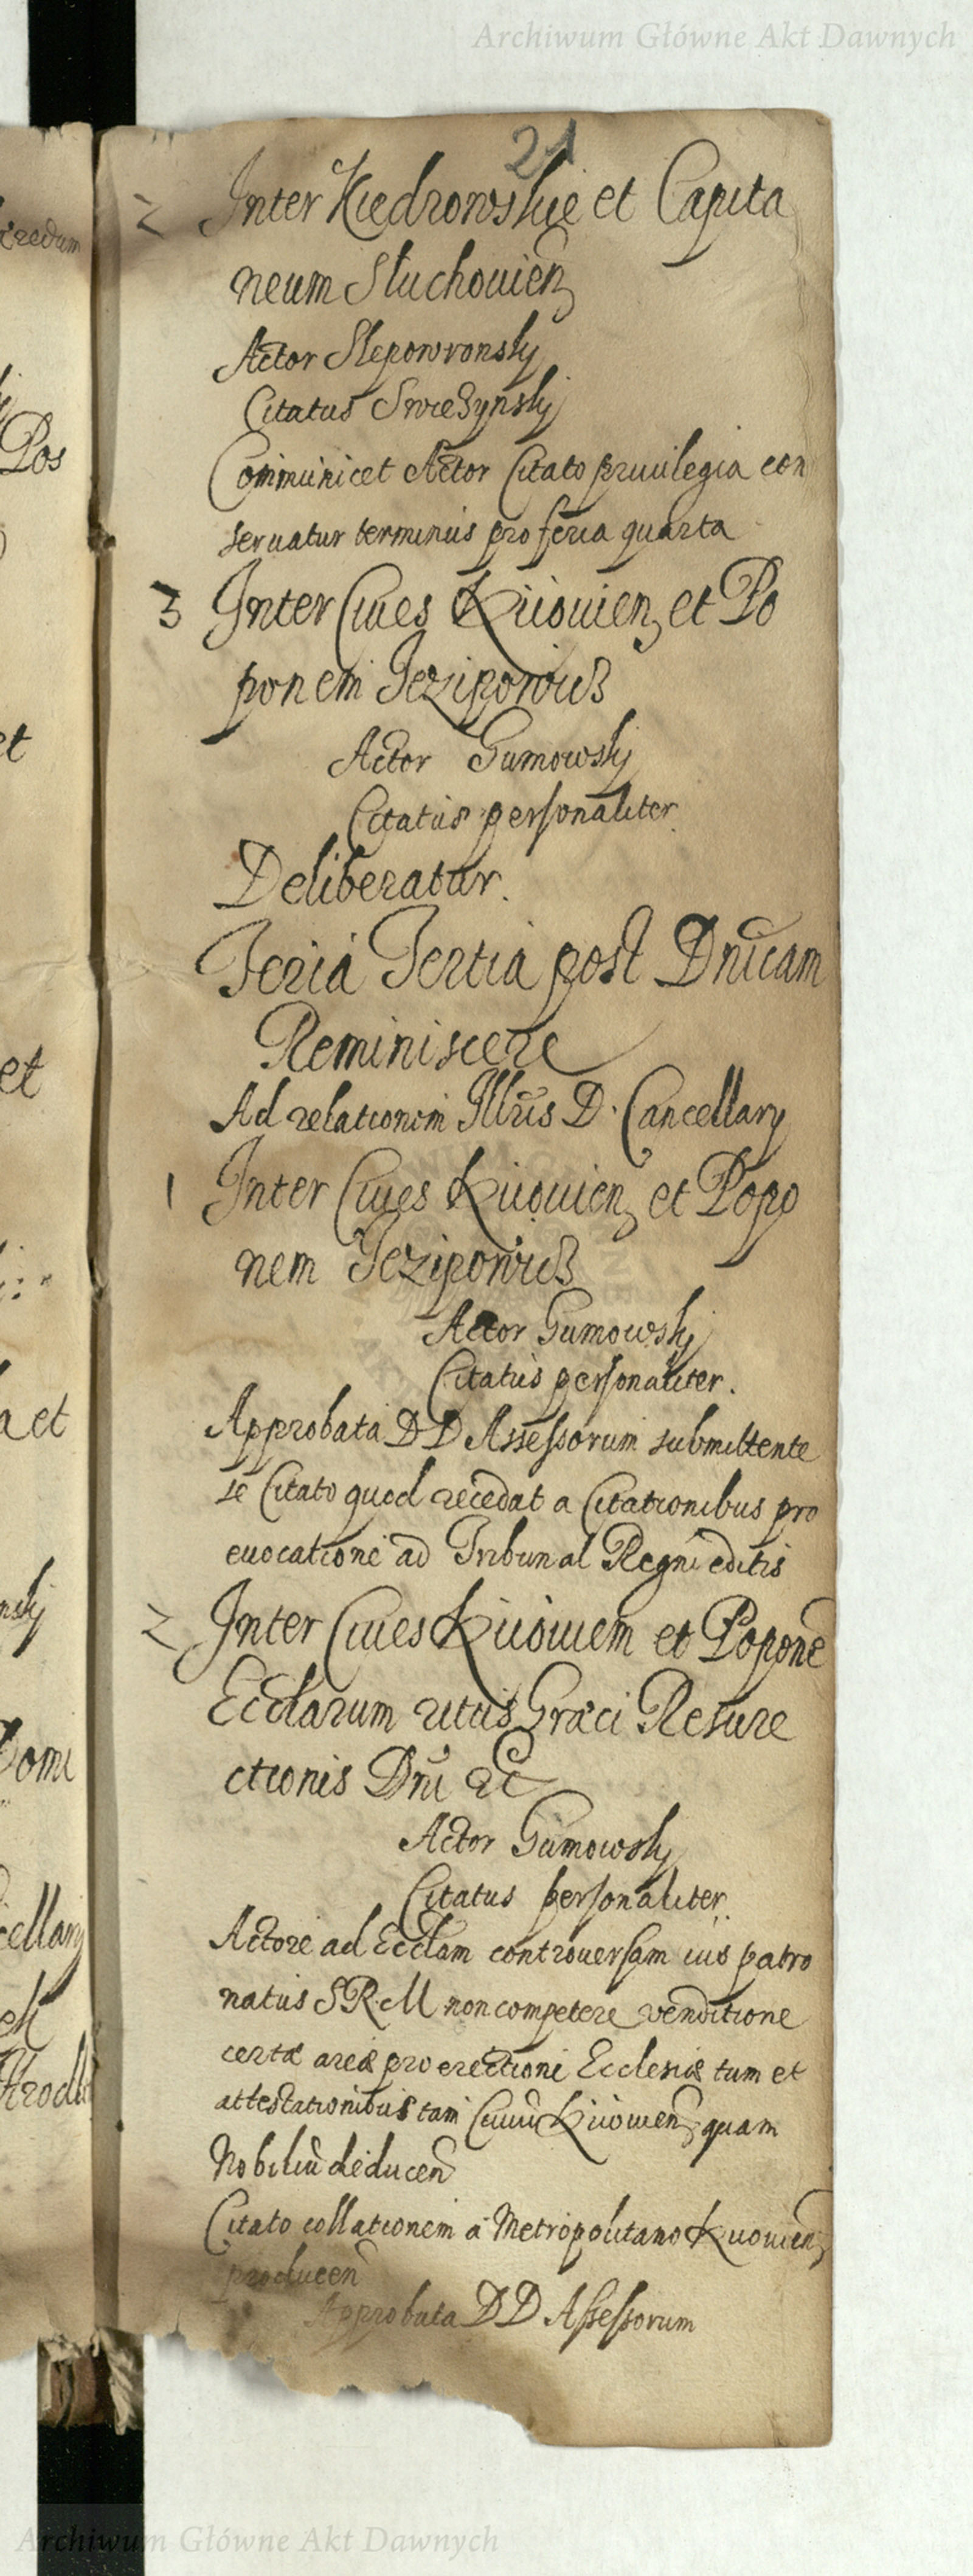 Archiwum Główne Akt Dawnych
21
2 Inter Kiedrowskie et Capita
neum Sluchouien
Actor Slepowronsky
Citatus Swiezynsky
Communicet Actor Citato priuilegia con
seruatur terminus pro feria quarta
3 Inter Ciues Kiiouien et Po
ponem Jeziporowicz
Actor Gumowsky
Citatus personaliter
Deliberatur.
Feria Tertia post Dnicam
Reminiscere
Ad relationem Illris D. Cancellary
1 Inter Ciues Kiiouien et Popo
nem Jeziporowicz
Actor Gumowsky
Citatus personaliter.
Approbata DD Assessorum submittente
se Citato quod recedat a Citationibus pro
euocatione ad Tribunal Regni editis
2 Inter Ciues Kiiouiem et Popone
Ecclarum ritus Græci Resure
ctionis Dni etc
Actor Gumowsky
Citatus personaliter.
Actore ad Ecclam controuersam ius patro
natus S R M non competere venditione
certæ areæ pro erectioni Ecclesiæ tum et
attestationibus tam Ciuiu Kiiowien quam
Nobiliu deducen
Citato collationem a Metropolitano Kiiouien
producen
Approbata DD Assessorum
redum
Pos
et
et
a et
nsky
Domi
cellary
Archiwum Główne Akt Dawnych